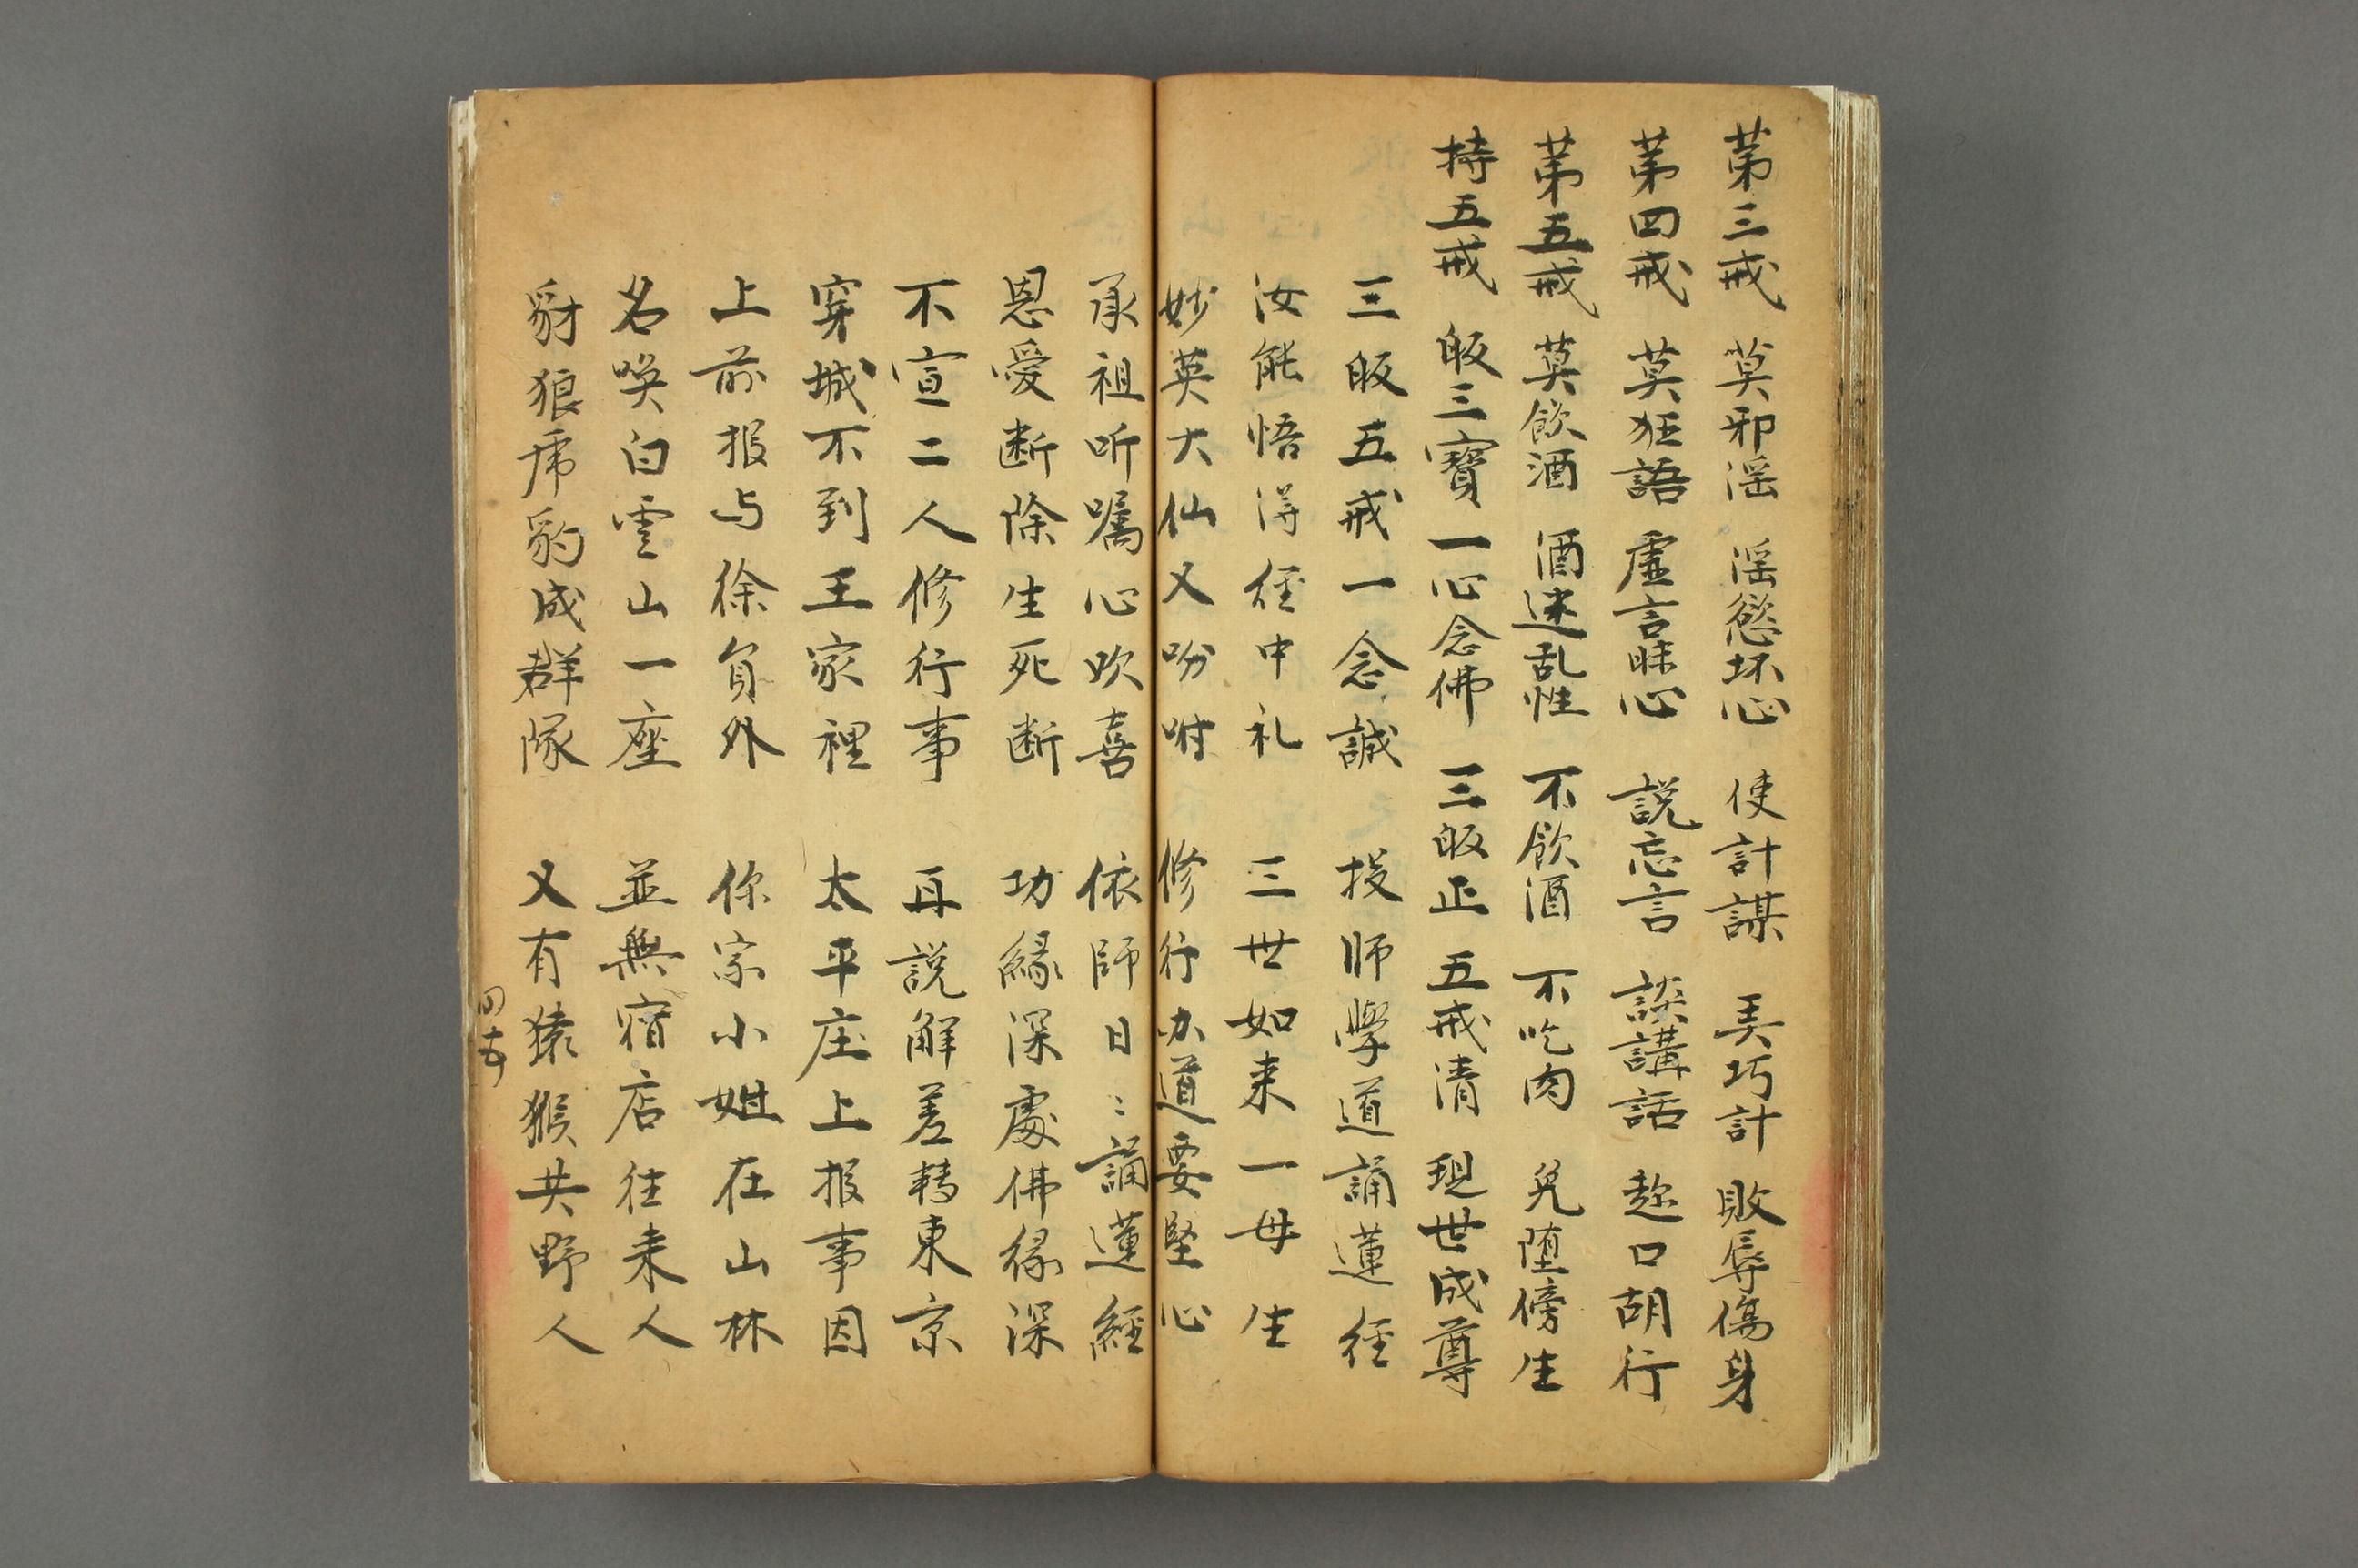 第三戒 莫邪淫 淫慾坏心 使計謀 弄巧計 敗辱傷身
第四戒 莫狂語 虛言昧心 説忘言 談講話 趂口胡行
第五戒 莫飲酒 酒迷乱性 不飲酒 不吃肉 免墮傍生
持五戒 皈三寶 一心念佛 三皈正 五戒清 現世成尊
三皈五戒一念誠 投师學道誦蓮径
汝能悟得径中礼 三世如来一母生
妙英大仙又吩咐 修行办道要堅心
承祖听嘱心欢喜 依師日：誦蓮經
恩愛断除生死断 功緣深處佛缘深
不宣二人修行事 再説解差轉東京
穿城不到王家裡 太平庄上报事因
上前报与徐員外 你家小姐在山林
名喚白雲山一座 並無宿店往来人
豺狼虎豹成群隊 又有猿猴共野人